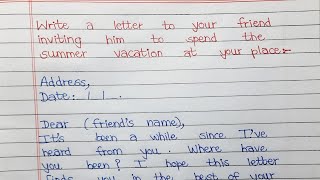 Write a letter to your friend
inviting him to spend the
summer vacation at your place:-
Address,
Date: / / .
Dear (friend's name),
It's been a while since I've
heard from you. Where have
you been? I hope this letter
finds you in the best of your